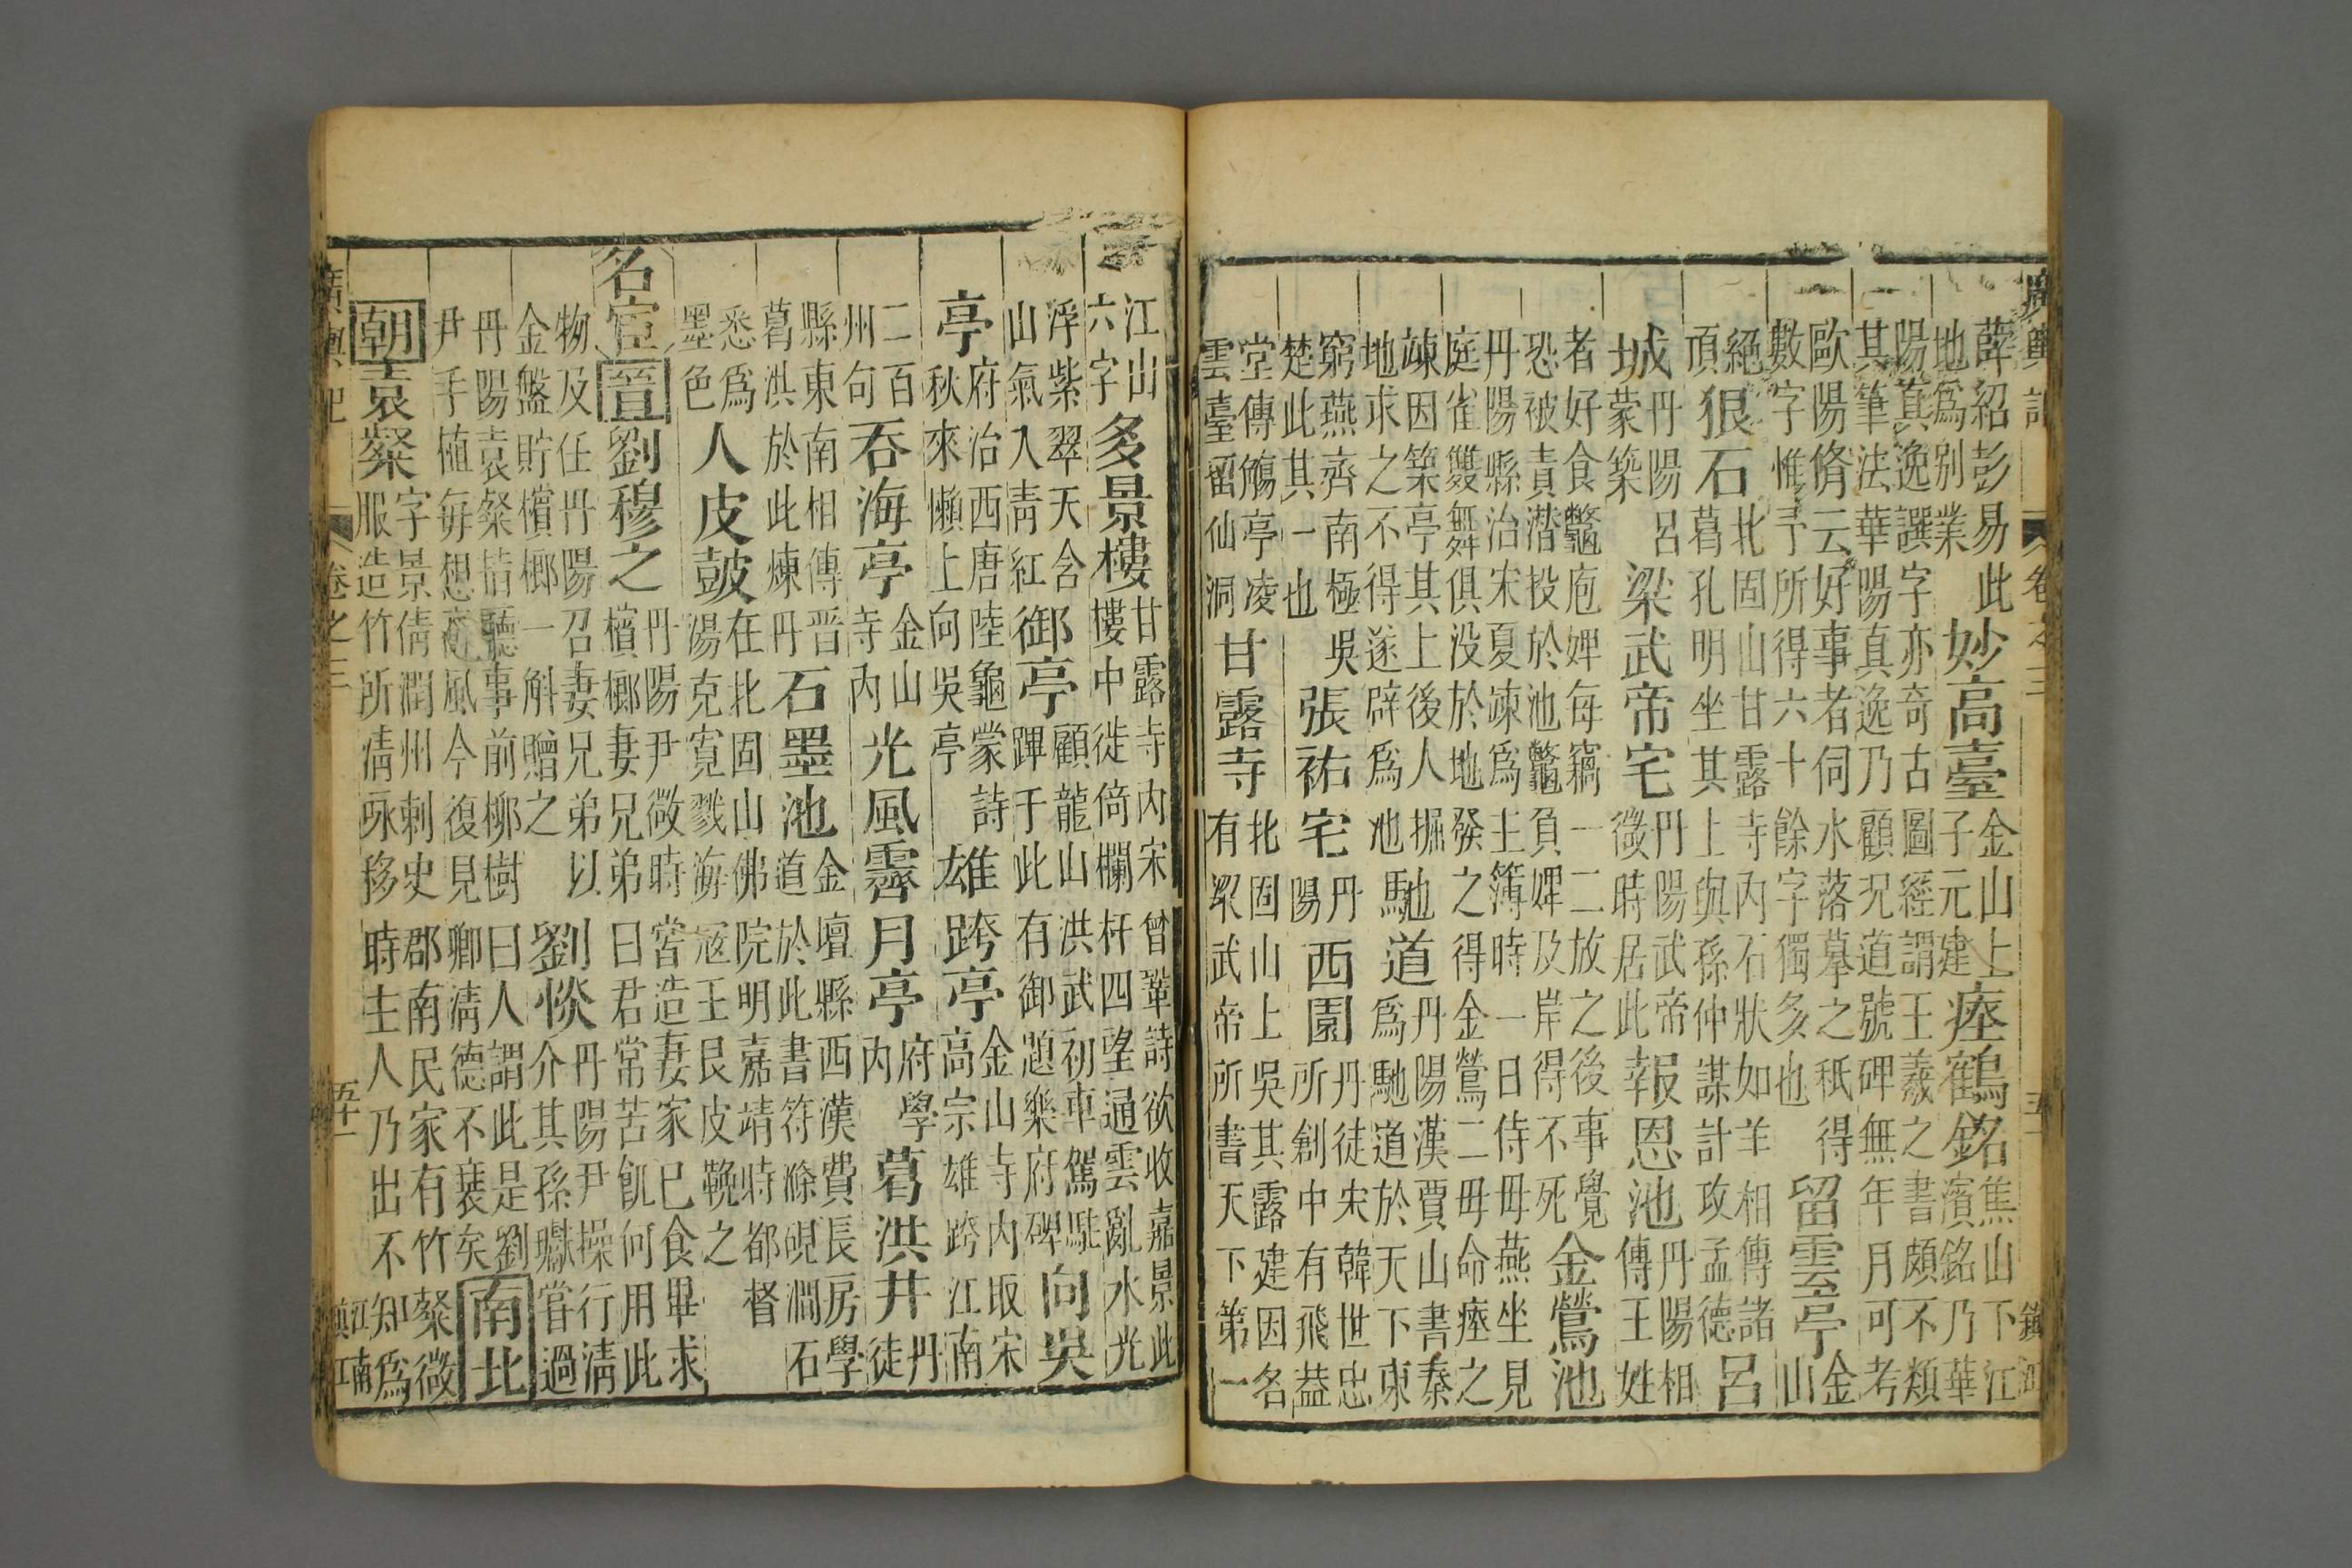 廣輿記 卷之三 鎮江
薛紹彭易此
地為別業
妙高臺
金山上
子元建
瘞鶴銘
焦山下江
濱銘乃華
陽真逸譔字亦奇古圖經謂王羲之書頗不類
其筆法華陽真逸乃顧況道號碑無年月可考
歐陽脩云好事者伺水落摹之秪得
數字惟予所得六十餘字獨多也
留雲亭
金
山
絕
頂
狠石
北固山甘露寺內石狀如羊相傳諸
葛孔明坐其上與孫仲謀計攻孟德
呂
城
丹陽呂
蒙築
梁武帝宅
丹陽武帝
微時居此
報恩池
丹陽相
傳王姓
者好食鼈庖婢每竊一二放之後事覺
恐被責潛投於池鼈負婢及岸得不死
金鶯池
丹陽縣治宋夏竦為主簿時一日侍母燕坐見
庭雀雙舞俱没於地發之得金鶯二母命瘞之
竦因築亭其上後人掘
地求之不得遂辟為池
馳道
丹陽漢賈山書秦
為馳道於天下東
窮燕齊南極吳
楚此其一也
張祐宅
丹
陽
西園
丹徒宋韓世忠
所創中有飛蓋
堂傳觴亭凌
雲臺留仙洞
甘露寺
北固山上吳其露建因名
有梁武帝所書天下第一
江山
六字
多景樓
甘露寺內宋曾鞏詩欲收嘉景此
樓中徙倚欄杆四望通雲亂水光
浮紫翠天含
山氣入青紅
御亭
顧龍山洪武初車駕駐
蹕于此有御題樂府碑
向吳
亭
府治西唐陸龜蒙詩
秋來懶上向吳亭
雄跨亭
金山寺內取宋
高宗雄跨江南
二百
州句
吞海亭
金山
寺內
光風霽月亭
府學
內
葛洪井
丹
徒
縣東南相傳晉
葛洪於此煉丹
石墨池
金壇縣西漢費長房學
道於此書符滌硯澗石
悉為
墨色
人皮鼓
在北固山佛院明嘉靖時都督
湯克寬戮海寇王艮皮鞔之
名宦 晉 劉穆之
丹陽尹微時嘗造妻家巳食畢求
檳榔妻兄弟曰君常苦飢何用此
物及任丹陽召妻兄弟以
金盤貯檳榔一斛贈之
劉惔
丹陽尹操行清
介其孫瓛嘗過
丹陽袁粲指聽事前柳樹曰人謂此是劉
尹手植每想高風今復見卿清德不衰矣
南北
朝 袁粲
字景倩潤州刺史郡南民家有竹粲微
服造竹所清咏移時主人乃出不知為
廣輿記 卷之三 五十一 江南鎮江